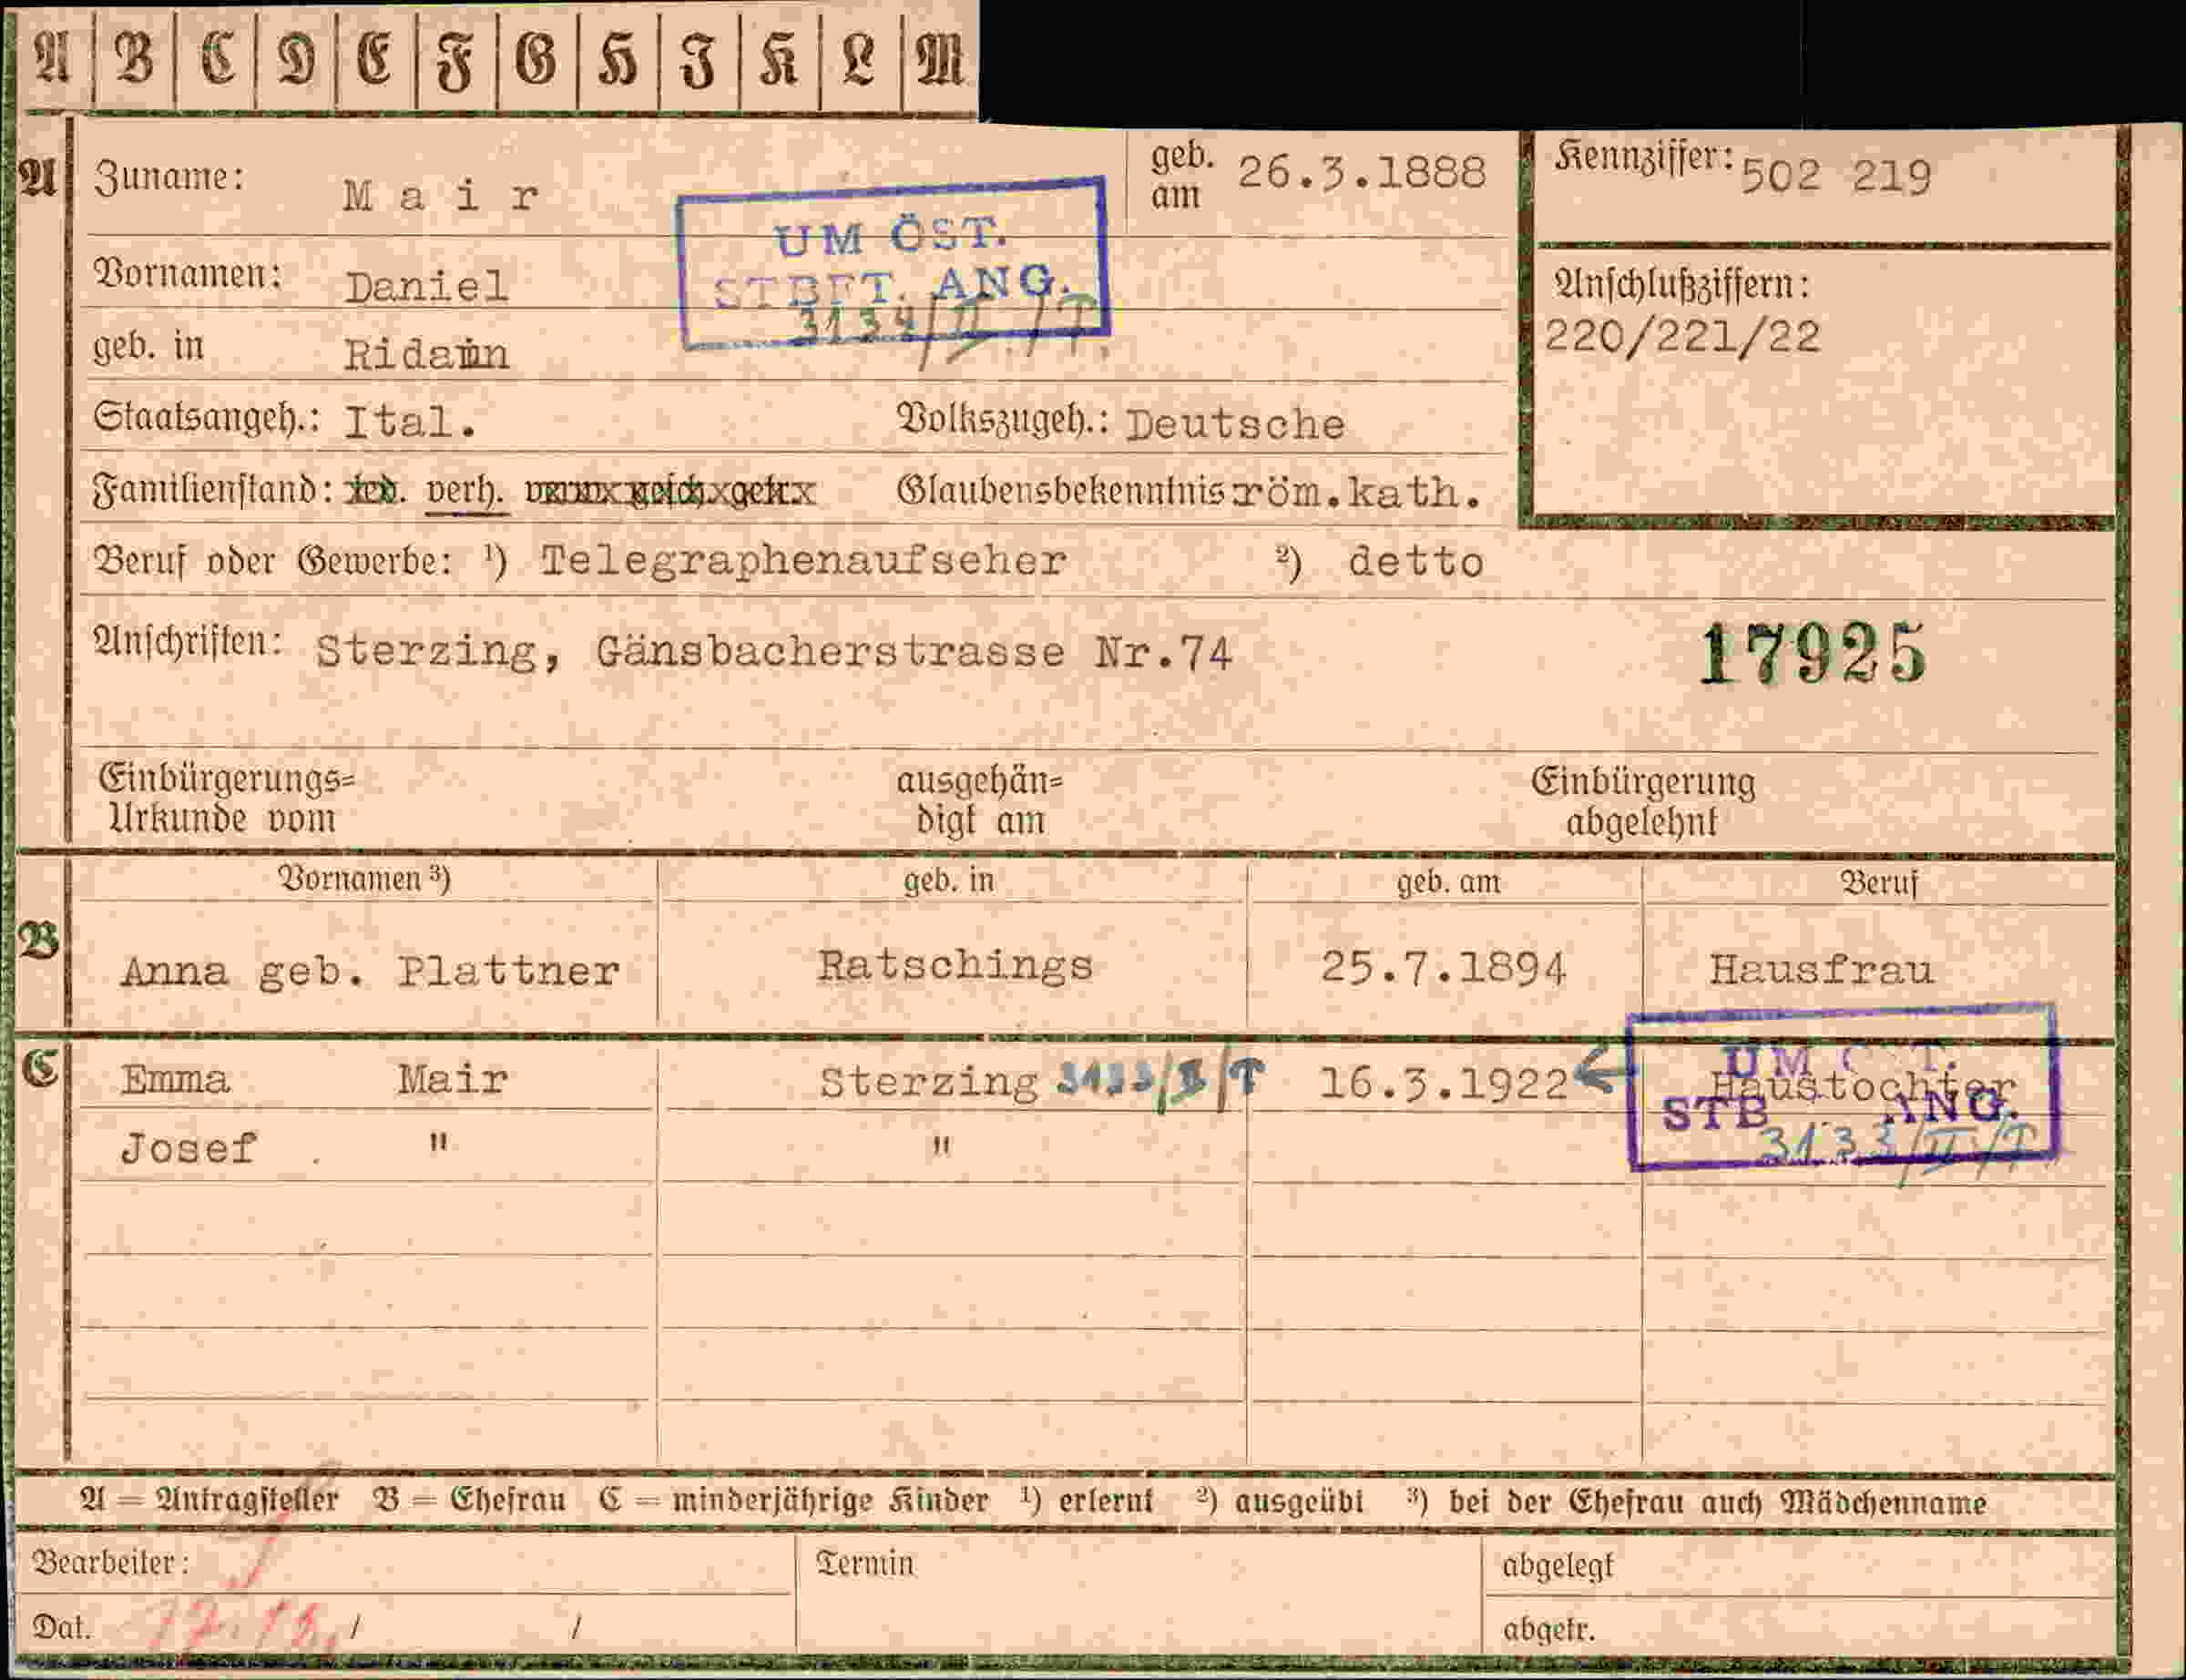 A B C D E F G H I K L M
A Zuname: Mair geb. am 26.3.1888 Kennziffer: 502 219
UM ÖST.
STBFT. ANG.
3134/II./T.
Vornamen: Daniel
Anschlußziffern:
220/221/22
geb. in
Staatsangeh.: Ital. Volkszugeh.: Deutsche
Familienstand: verh. Glaubensbekenntnis röm.kath.
Beruf oder Gewerbe: ¹) Telegraphenaufseher ²) detto
Anschriften: Sterzing, Gänsbacherstrasse Nr.74 17925
Einbürgerungs= ausgehän= Einbürgerung
Urkunde vom digt am abgelehnt
Vornamen ³) geb. in geb. am Beruf
B Anna geb. Plattner Ratschings 25.7.1894 Hausfrau
C Emma Mair Sterzing 3133/II/T 16.3.1922 Haustochter
UM ST.
STB ANG.
3133/II/T.
Josef " "
A = Antragsteller B = Ehefrau C = minderjährige Kinder ¹) erlernt ²) ausgeübt ³) bei der Ehefrau auch Mädchenname
Bearbeiter: Termin abgelegt
Dat. / / abgetr.